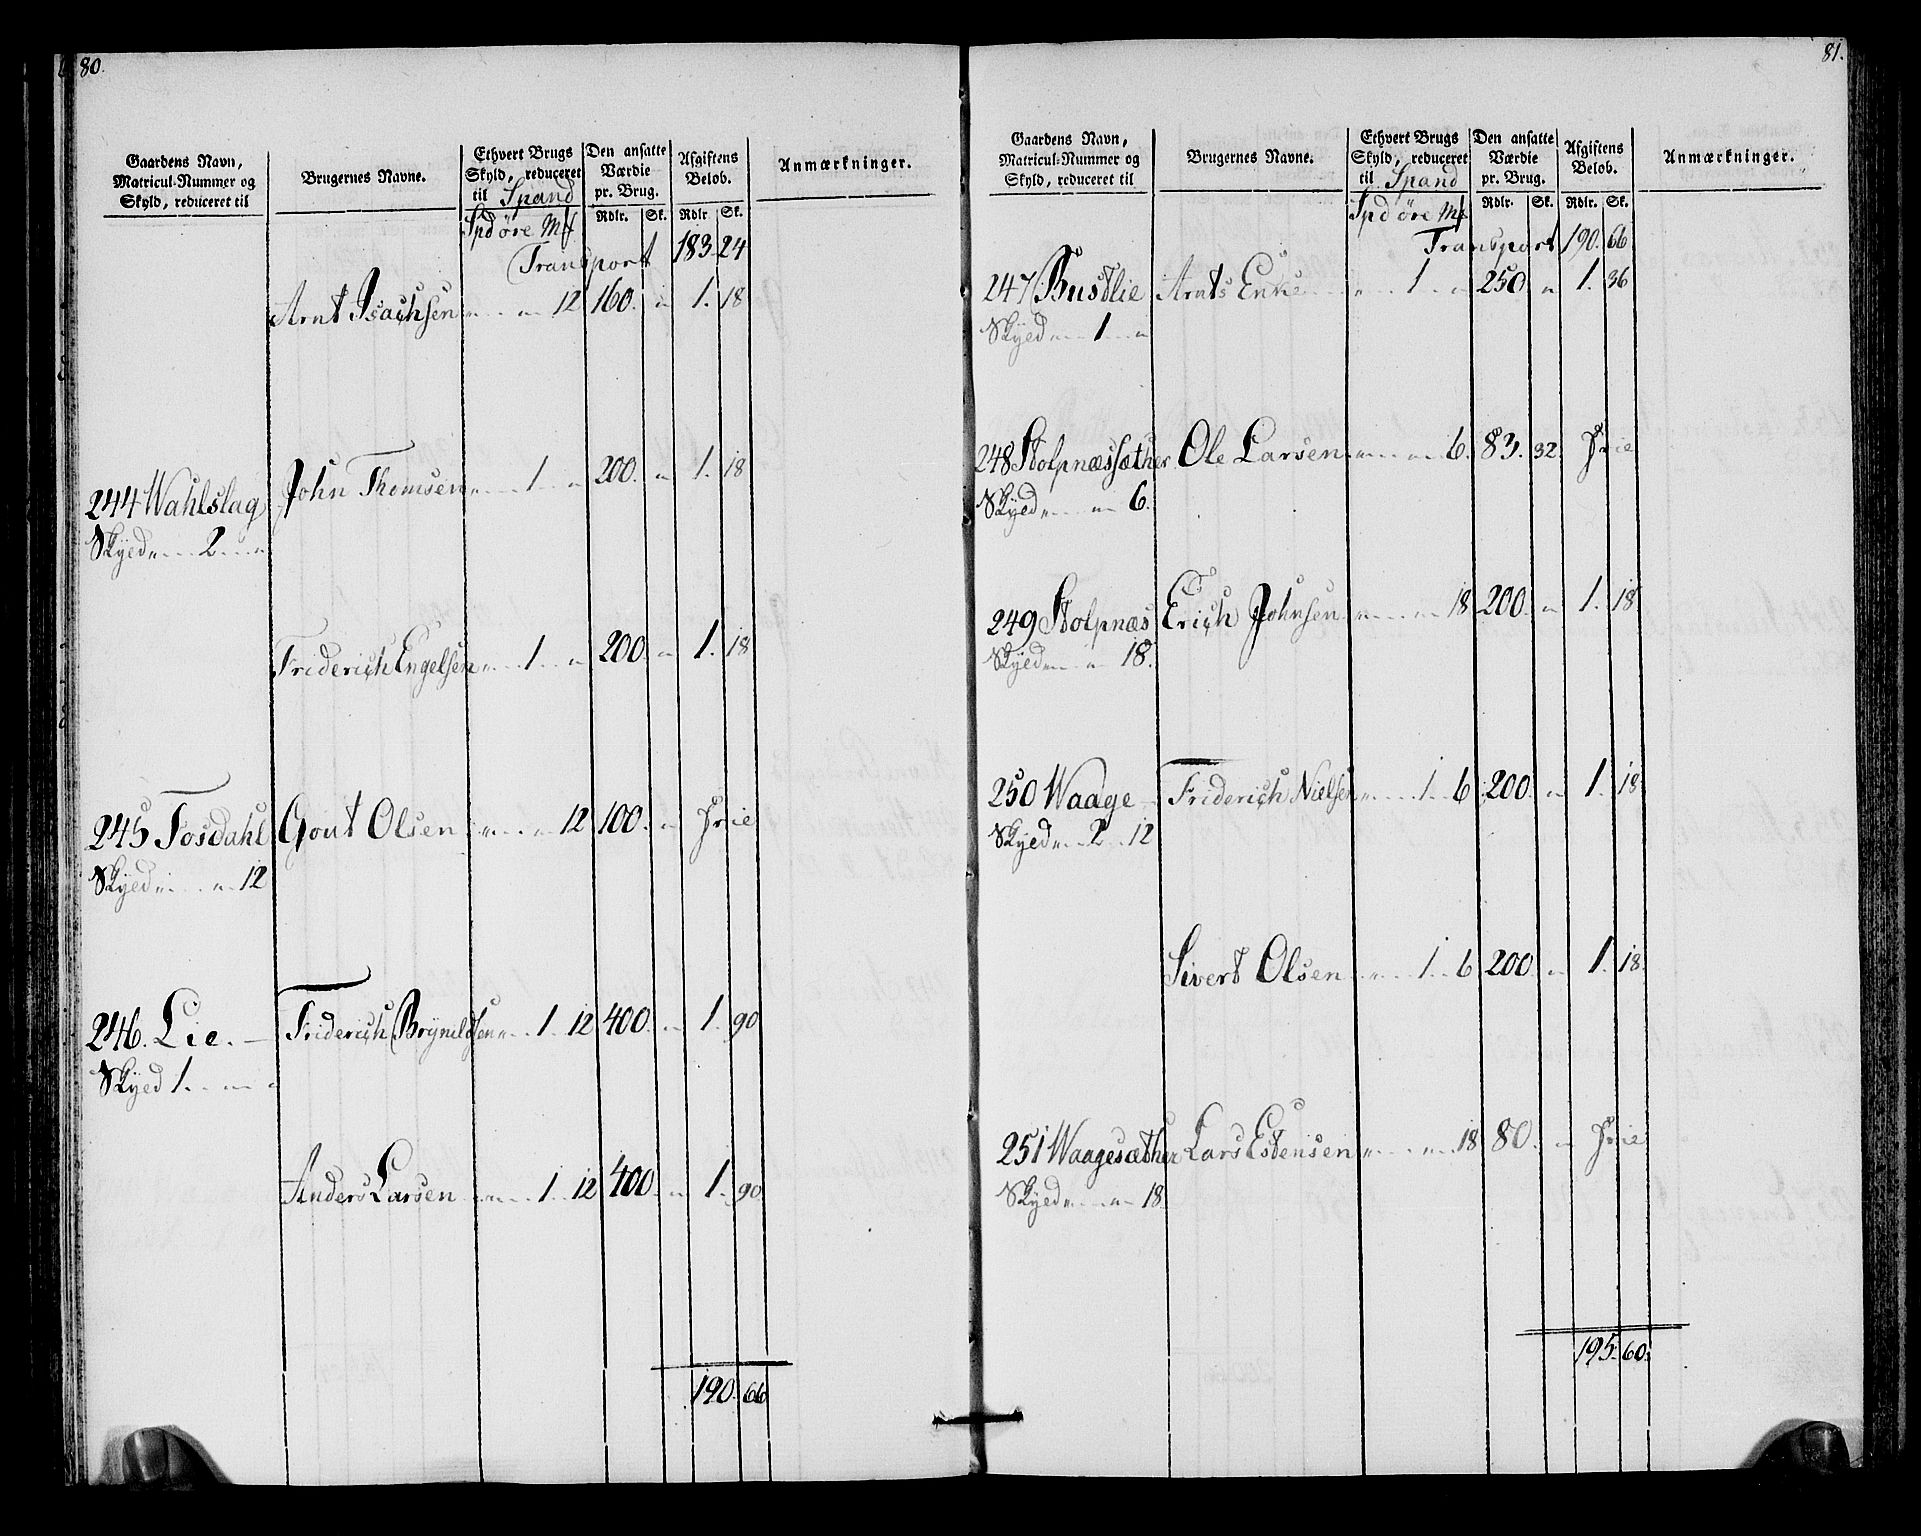 80.
Gaardens Navn, Matricul-Nummer og Skyld, reduceret til
Brugernes Navne.
Ethvert Brugs Skyld, reduceret til Spand
Den ansatte Værdie pr. Brug.
Afgiftens Belob.
Anmærkninger.
Spd öre Mk
Rdlr. Sk. Rdlr. Sk.
Transport 183. 24
Arnt Isachsen „ „ 12 160. „ 1. 18
244 Wahlslag John Thomsen „ 1 „ 200. „ 1. 18
Skyed „ 2 „
Friderich Engelsen „ 1 „ 200. „ 1. 18
245 Fosdahl Gout Olsen „ „ 12 100. „ Frie
Skyed „ „ 12
246. Lie. Friderich Brynildsen „ 1 12 400. „ 1. 90
Skyed 1. „ „
Anders Larsen „ 1 12 400. „ 1. 90
190. 66
81.
Gaardens Navn, Matricul-Nummer og Skyld, reduceret til
Brugernes Navne.
Ethvert Brugs Skyld, reduceret til Spand
Den ansatte Værdie pr. Brug.
Afgiftens Belob.
Anmærkninger.
Spd öre Mk
Rdlr. Sk. Rdlr. Sk.
Transport 190. 66
247 Bustlie Arnts Enke „ 1 „ 250. „ 1. 36
Skyed „ 1 „
248 Stolpnæssæther Ole Larsen „ „ 6. 83. 32. Frie
Skyed „ „ 6.
249 Stolpnæs Erich Johnsen „ „ 18 200. „ 1. 18
Skyed „ „ 18.
250 Waage Friderich Nielsen „ 1 6 200. „ 1. 18
Skyed „ 2 12
Sivert Olsen „ 1 6 200 „ 1. 18.
251 Waagesæther Lars Estensen „ „ 18 80. „ Frie
Skyed „ „ 18.
195. 60.